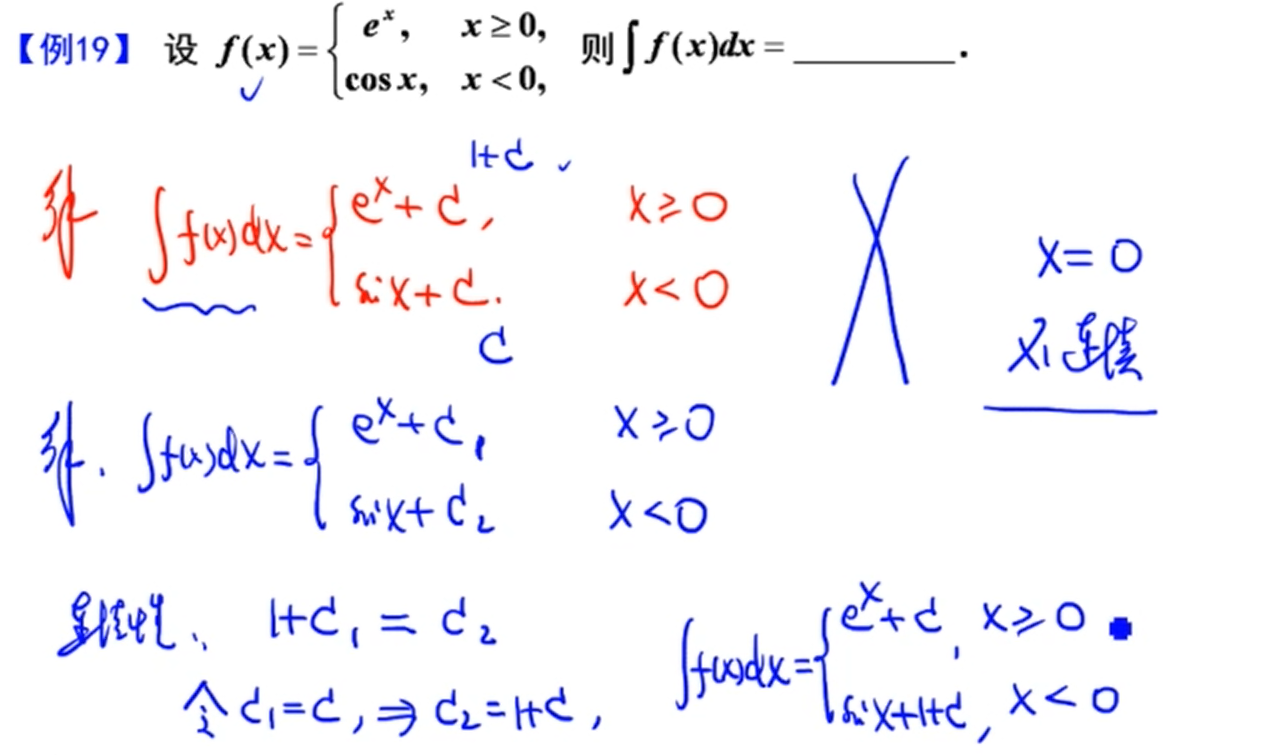 【例19】 设 f(x)={ e^x, x≥0, cos x, x<0, 则∫f(x)dx=________.
1+C
解 ∫f(x)dx={ e^x+C, x≥0
sin x+C. x<0
C
x=0
不连续
解. ∫f(x)dx={ e^x+C₁ x≥0
sin x+C₂ x<0
连续性, 1+C₁=C₂
令 C₁=C, ⇒ C₂=1+C,
∫f(x)dx={ e^x+C, x≥0
sin x+1+C, x<0